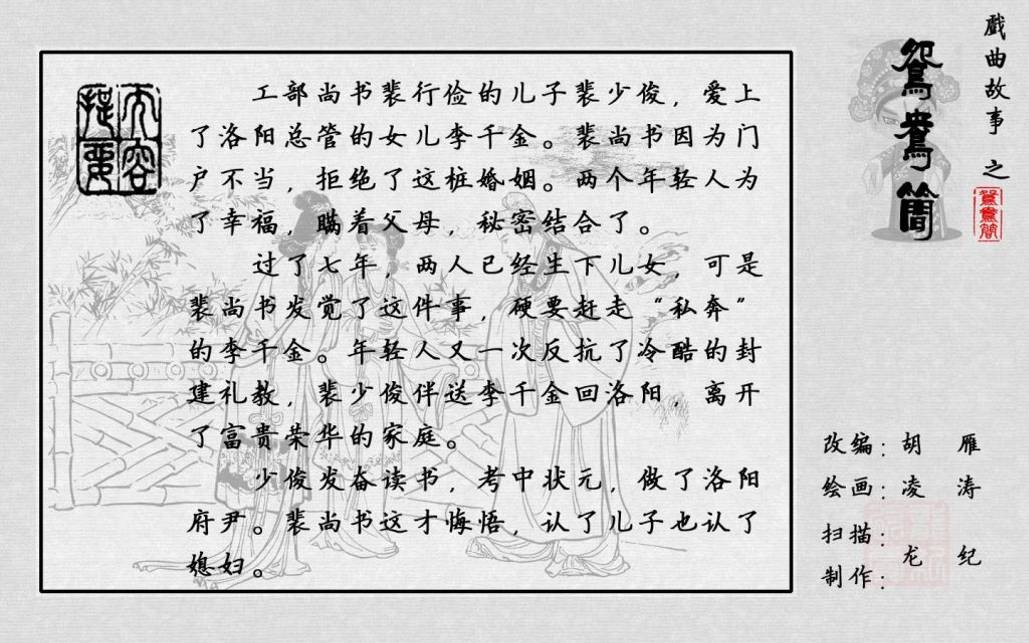 戲曲故事之
鸳鸯简
鴛鴦簡
内容提要
工部尚书裴行俭的儿子裴少俊，爱上
了洛阳总管的女儿李千金。裴尚书因为门
户不当，拒绝了这桩婚姻。两个年轻人为
了幸福，瞒着父母，秘密结合了。
过了七年，两人已经生下儿女，可是
裴尚书发觉了这件事，硬要赶走“私奔”
的李千金。年轻人又一次反抗了冷酷的封
建礼教，裴少俊伴送李千金回洛阳，离开
了富贵荣华的家庭。
少俊发奋读书，考中状元，做了洛阳
府尹。裴尚书这才悔悟，认了儿子也认了
媳妇。
改编：胡 雁
绘画：凌 涛
扫描：
制作：龙 纪